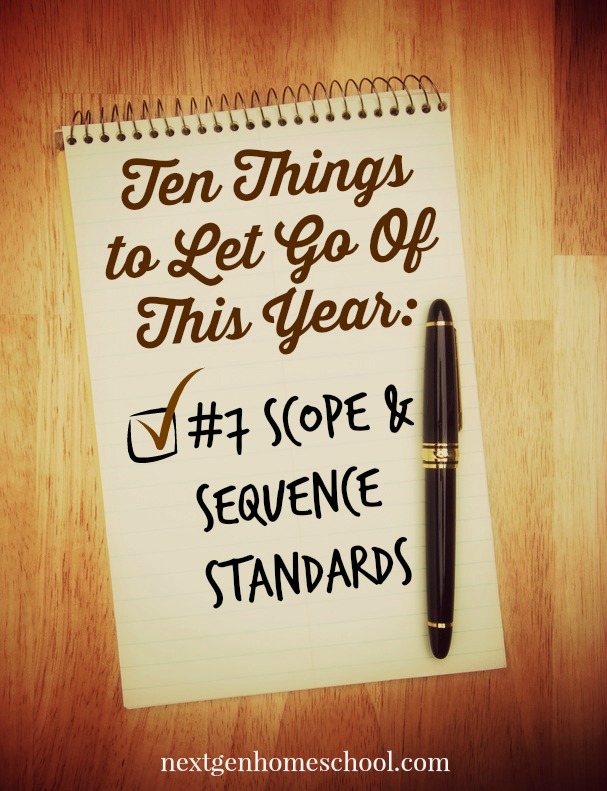 Ten Things
to Let Go Of
This Year:
#7 SCOPE &
SEQUENCE
STANDARDS
nextgenhomeschool.com